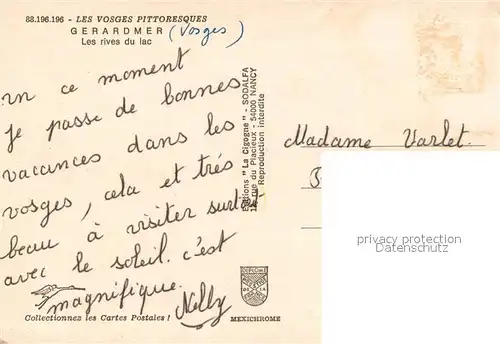 88.196.196 - LES VOSGES PITTORESQUES
GERARDMER (Vosges)
Les rives du lac
En ce moment
je passe de bonnes
vacances dans les
vosges, cela et trés
beau à visiter surtout
avec le soleil. c'est
magnifique.
Nelly
Collectionnez les Cartes Postales !
MEXICHROME
Editions "La Cigogne" - SODALFA
rue du Placieux - 54000 NANCY
Reproduction interdite
Madame Varlet.
privacy protection
Datenschutz